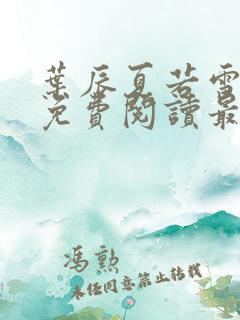 葉辰夏若雪
免費閱讀最
馮勲
未經同意禁止轉載